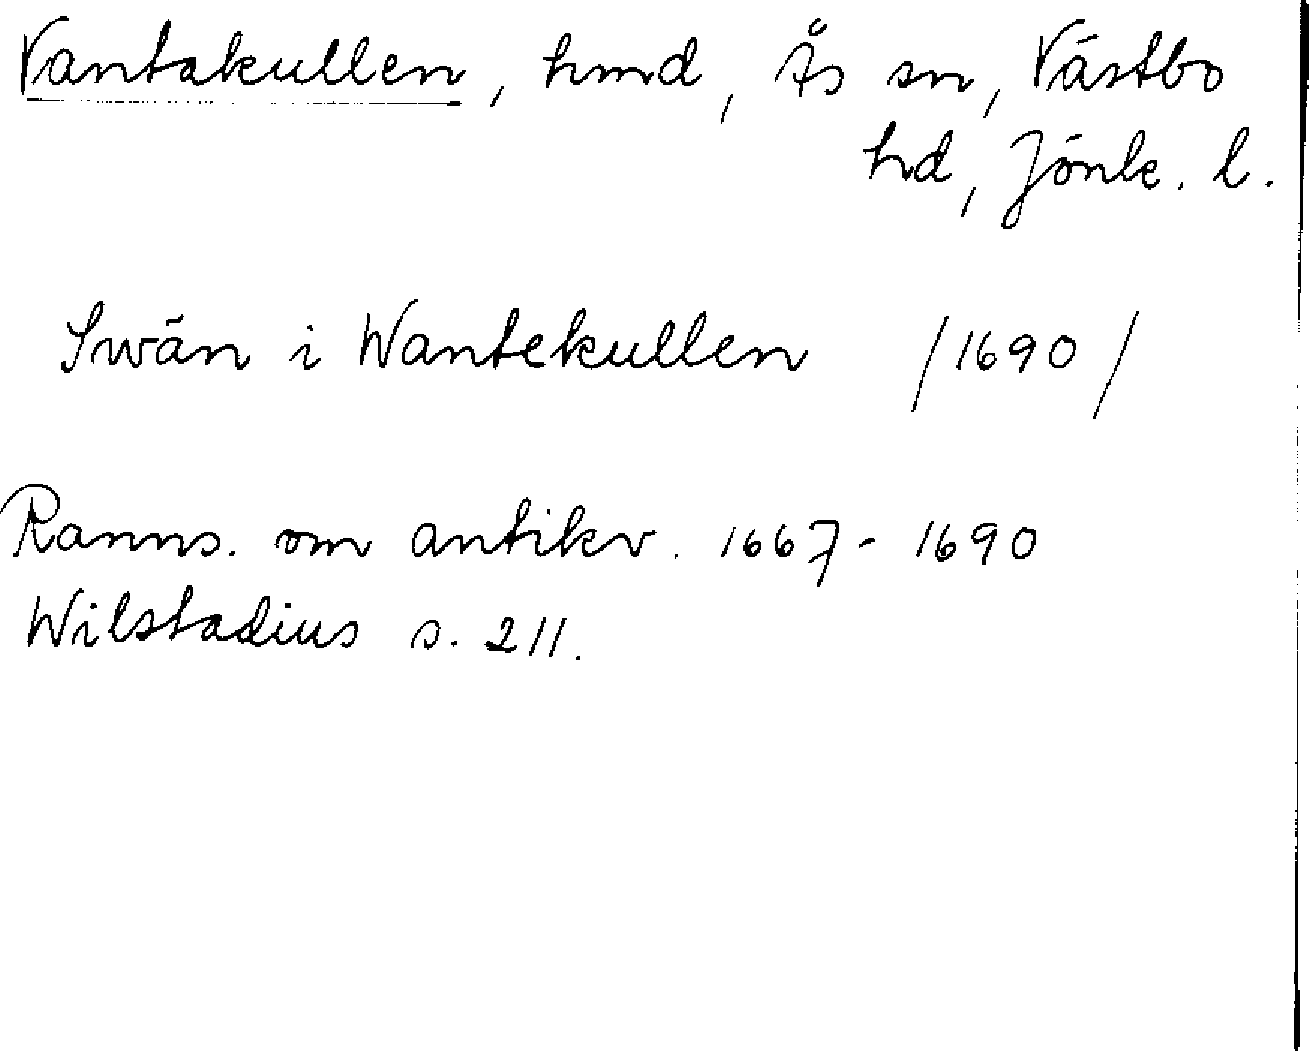 Vantakullen, hmd, Ås sn, Västbo
hd, Jönk. l.
Swän i Wantekullen /1690/
Ranns. om antikv. 1667-1690
Wilstadius s. 211.